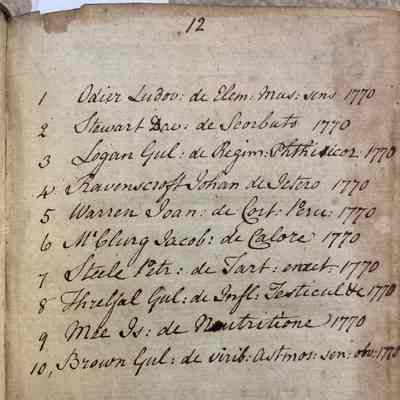 12
1 Odier Ludov: de Elem: Mus: sens 1770
2 Stewart Dav: de Scorbuto 1770
3 Logan Gul: de Regim: Phthisicor: 1770
4 Ravenscroft Johan de Ictero 1770
5 Warren Joan: de Cort: Peru: 1770
6 McClurg Jacob: de Calore 1770
7 Steele Petr: de Tart: emet. 1770
8 Threlfal Gul: de Infl: Testicul &c 1770
9 Mee Is: de Nutritione 1770
10, Brown Gul: de virib: Atmos: sen: 1770